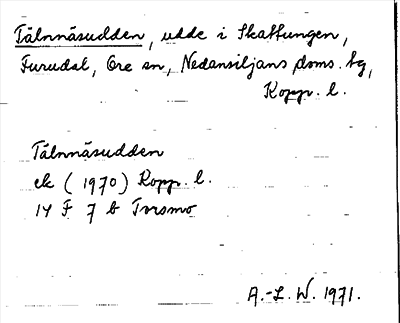 Tälnnäsudden, udde i Skattungen,
Furudal, Ore sn, Nedansiljans doms. tg,
Kopp. l.
Tälnnäsudden
ek (1970) Kopp. l.
14 F 7 b Torsmo
A.-L. W. 1971.